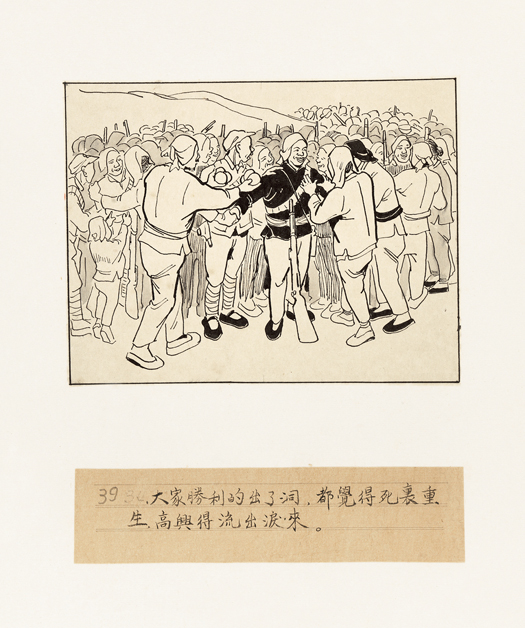 39 大家勝利的出了洞,都覺得死裏重
生,高興得流出淚來。